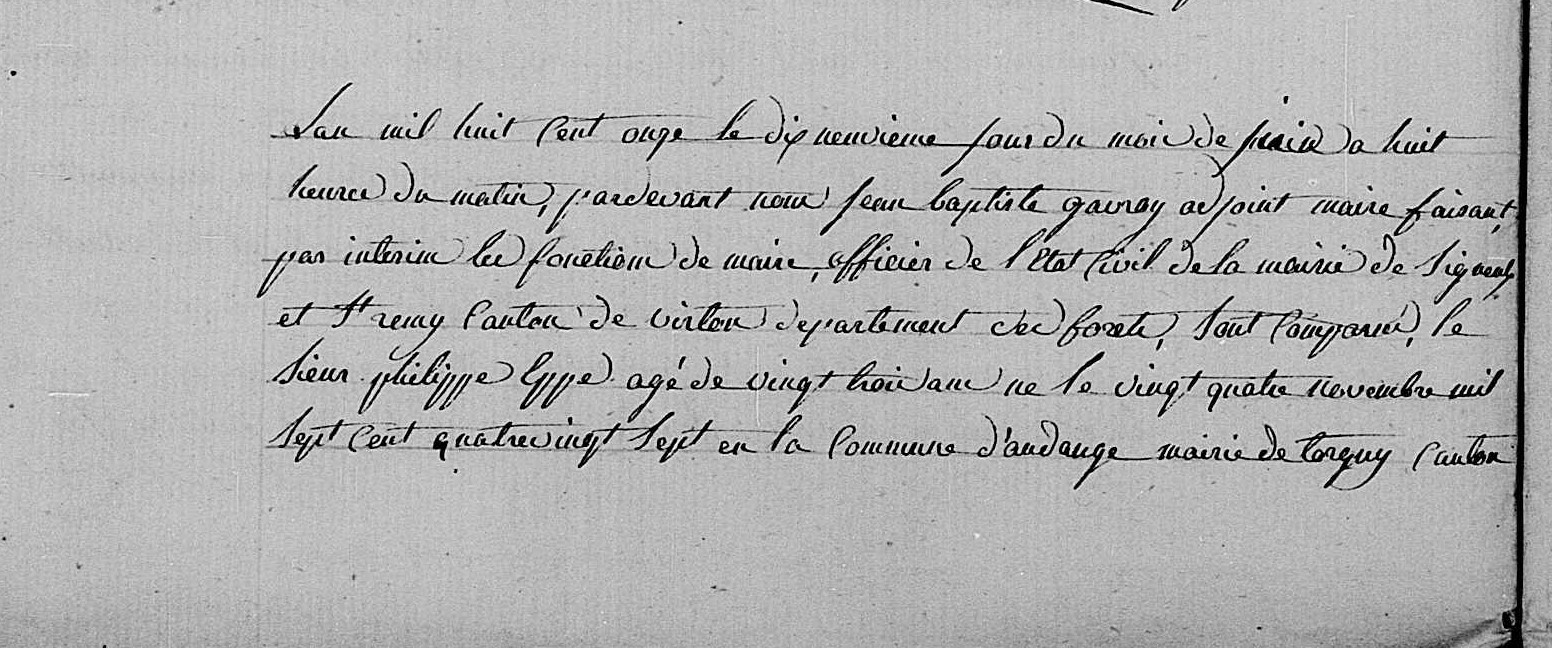 L'an mil huit cent onze le dix neuvieme jour du mois de juin a huit
heures du matin, pardevant nous jean baptiste gavroy adjoint maire faisant
par interim les fonctions de maire, officier de l'Etat Civil de la mairie de Signeulx
et St remy Canton de virton departement des forets, Sont Comparus, le
Sieur philippe Eppe agé de vingt trois ans ne le vingt quatre novembre mil
Sept Cent quatrevingt Sept en la Commune d'audange mairie de torgny Canton